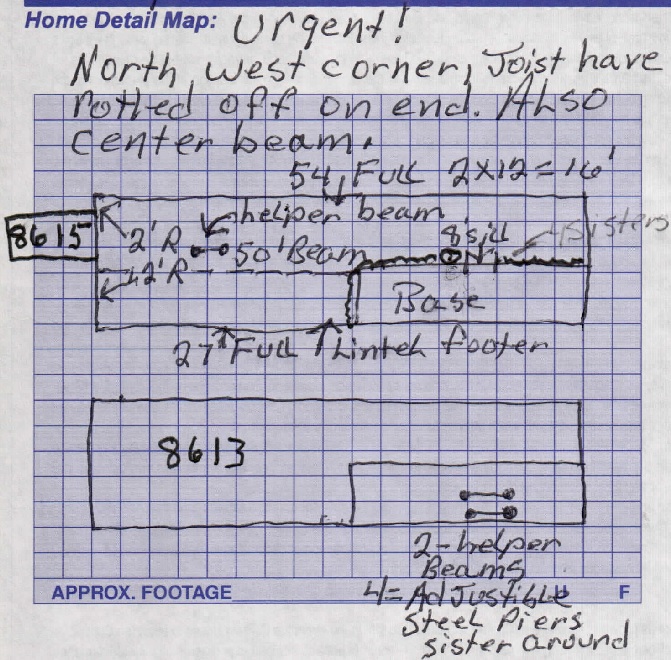 Home Detail Map: Urgent!
North west corner, Joist have
rotted off on end. Also
center beam.
54' Full 2x12 = 16'
helper beam
8615
2'R
50' Beam
8' sill
Sisters
2'R
Base
27' Full
Lintel footer
8613
2-helper
Beams
APPROX. FOOTAGE F
4= AdJustible
Steel Piers
sister around